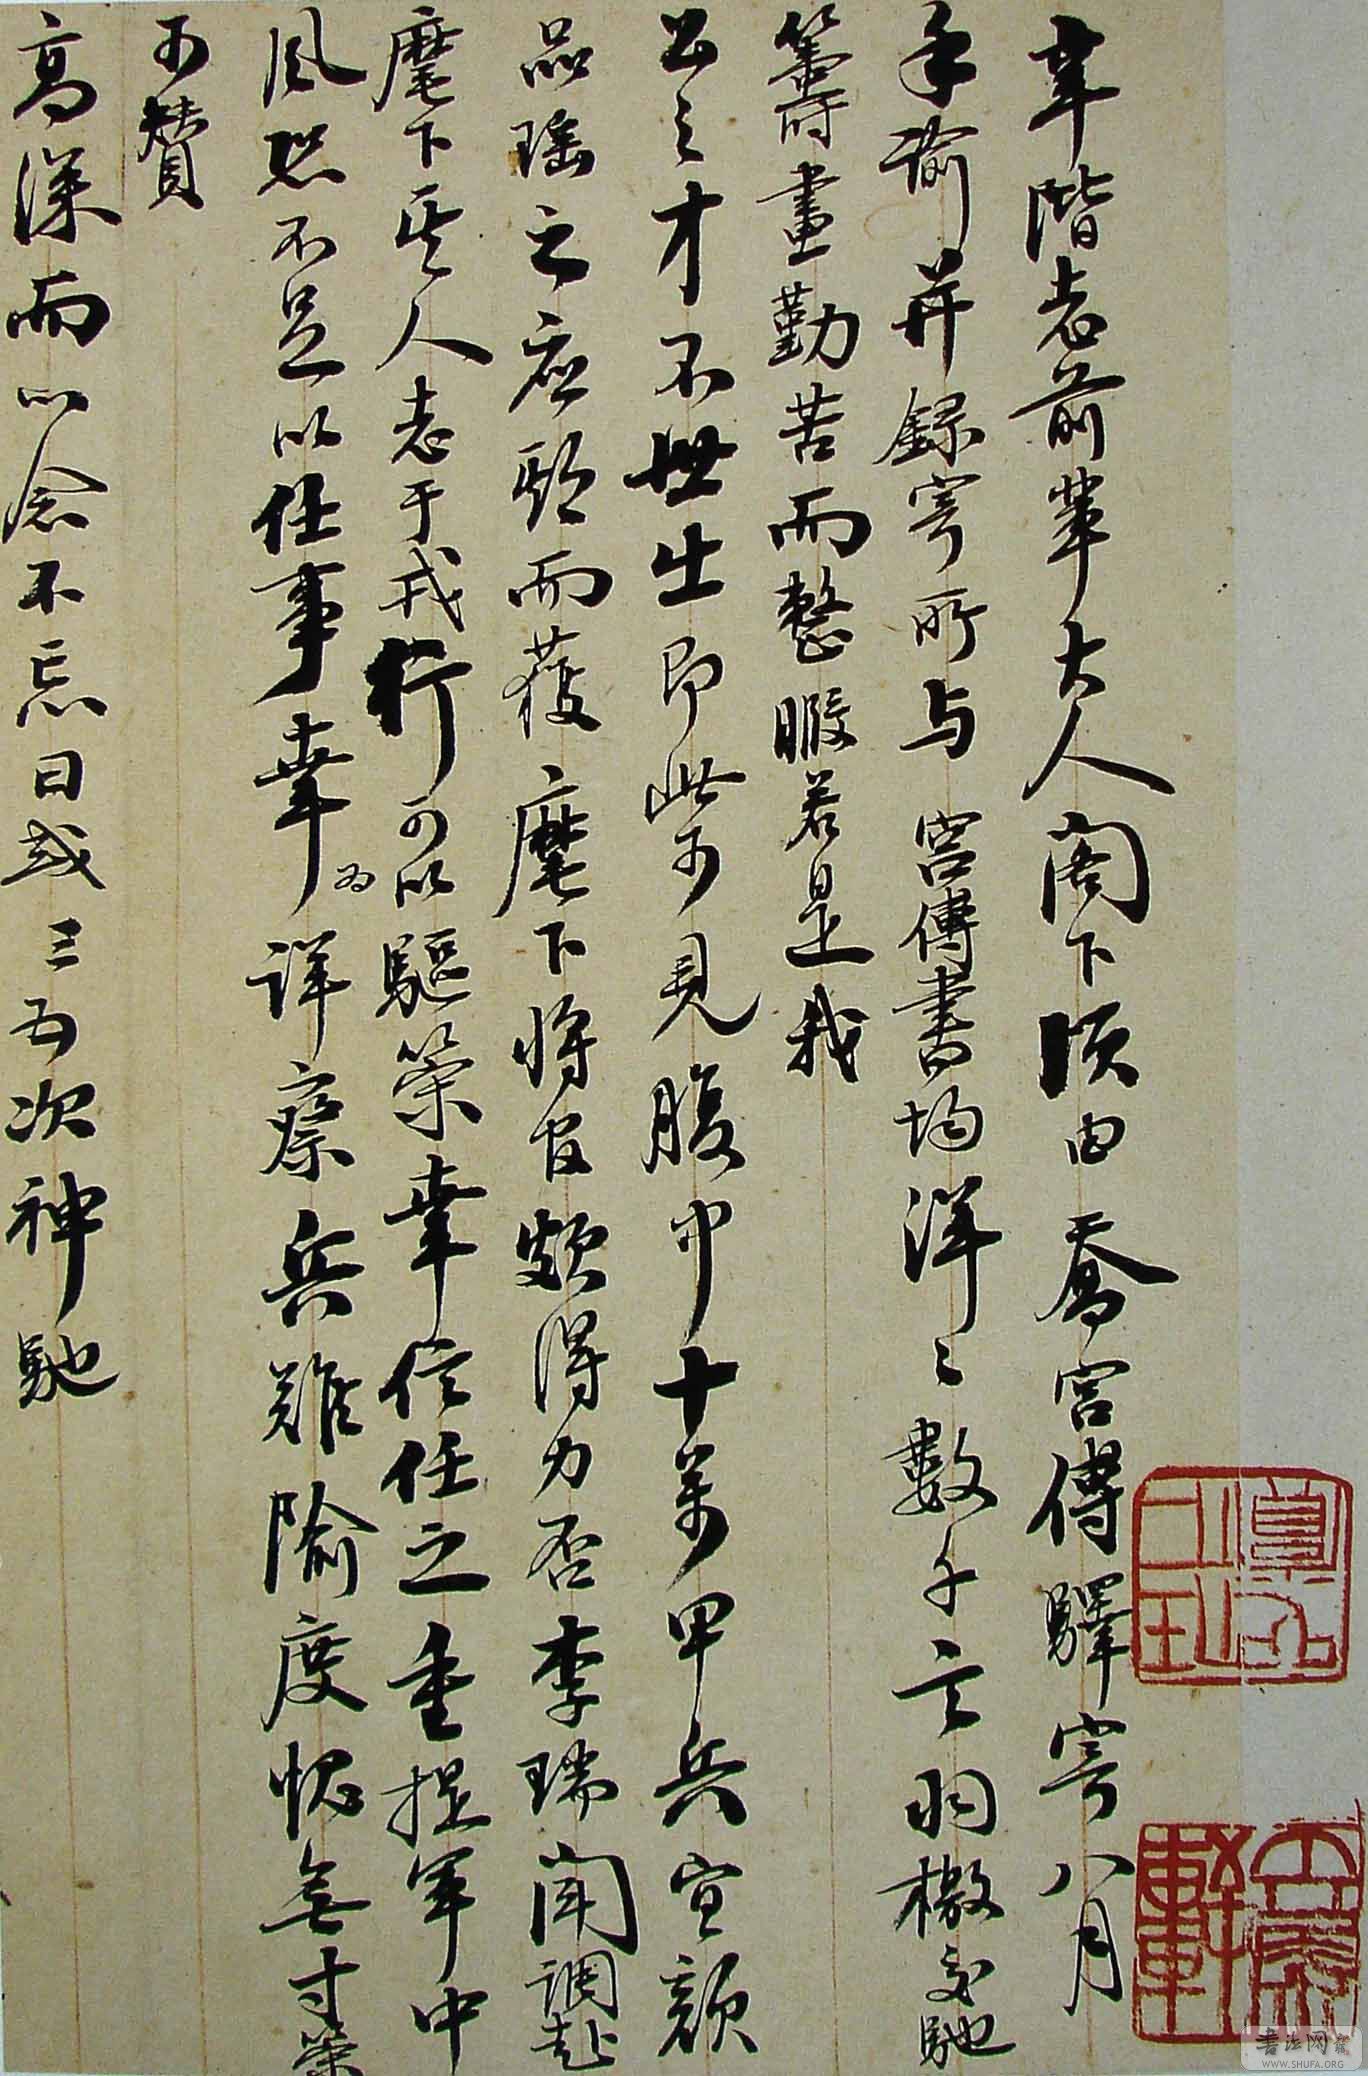 韋階老前輩大人閣下頃由喬宮傅驛寄八月
手諭并錄寄所与宮傅書均洋々數千言羽檄交馳
籌畫勤苦而整暇若是我
公之才不世出即此可見腹中十萬甲兵宣額
品瑤之應酌而獲麾下將官頗得力否李瑞聞調赴
麾下其人志于戎行可以驅策幸信任之重握軍中
風恐不足以任事幸為詳察兵難隃度愧無寸策
可贊
高深而心念不忘日或三五次神馳
書法网
WWW.SHUFA.ORG